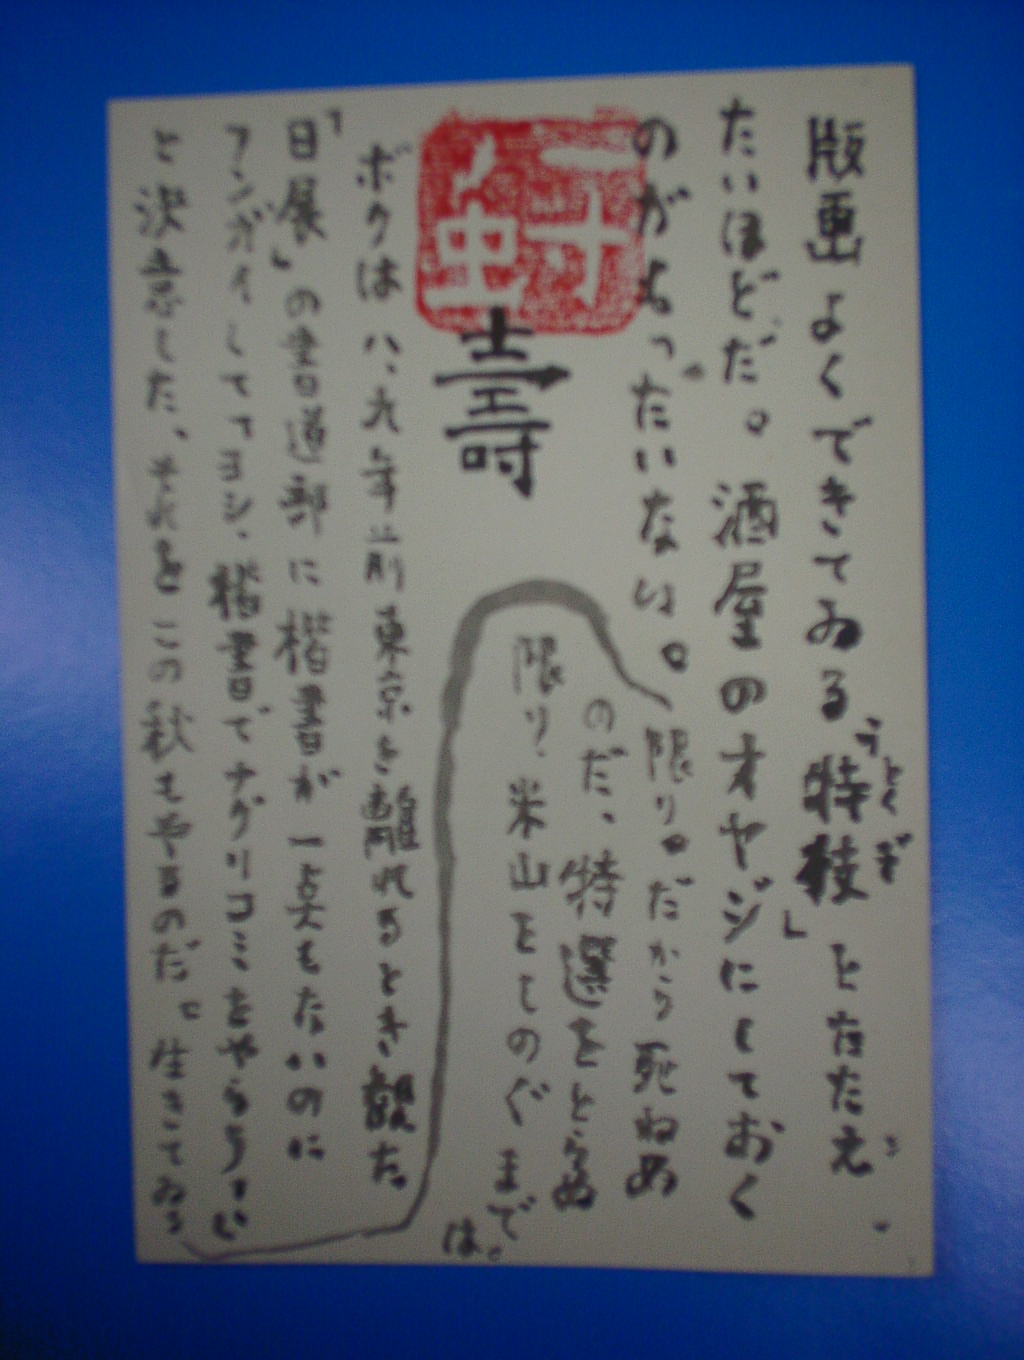 版画よくできてゐる「特技」をたたえ
とくぎ
たいほどだ。酒屋のオヤジにしておく
のがもったいない。
一寸
虫
壽
ボクは八、九年前東京を離れるとき観た。
「日展」の書道部に楷書が一点もないのに
フンガイして「ヨシ、楷書でナグリコミをやらう」い
と決意した、それをこの秋もやるのだ。生きてゐる
限り。だから死ねぬ
のだ、特選をとらぬ
限り、米山をしのぐまで
は。